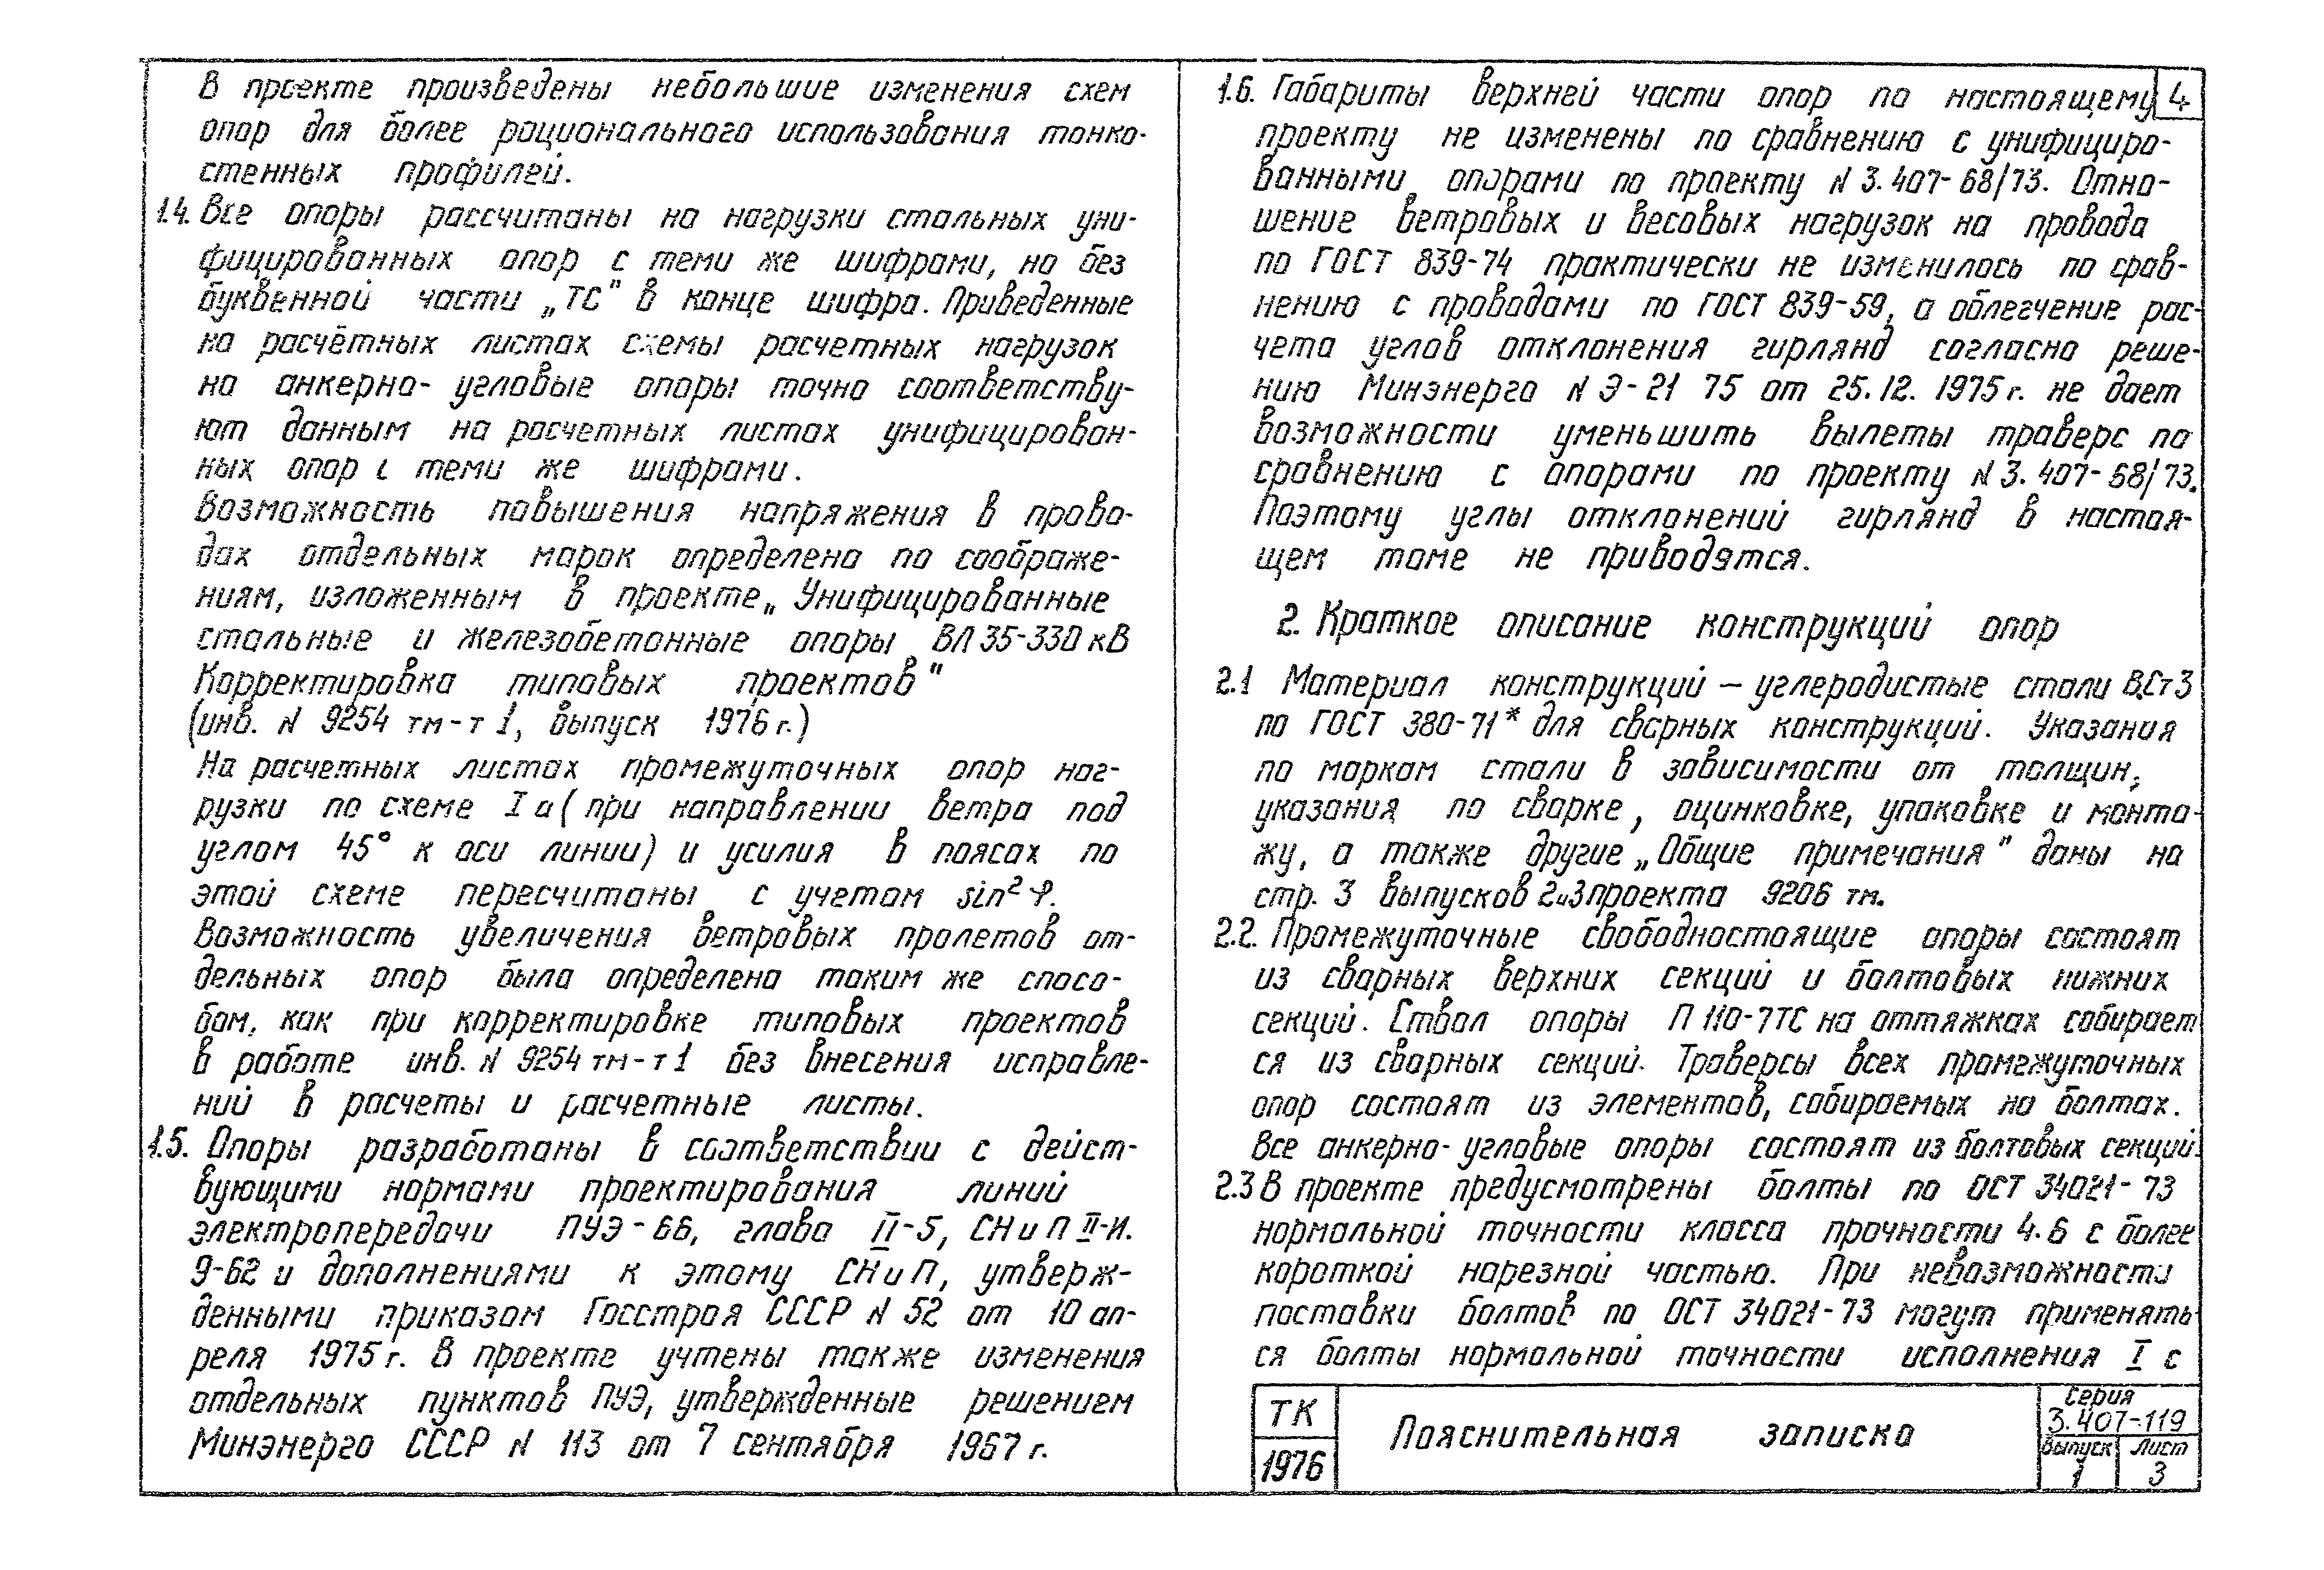 В проекте произведены небольшие изменения схем
опор для более рационального использования тонко-
стенных профилей.
1.4. Все опоры рассчитаны на нагрузки стальных уни-
фицированных опор с теми же шифрами, но без
буквенной части „ТС" в конце шифра. Приведенные
на расчётных листах схемы расчетных нагрузок
на анкерно-угловые опоры точно соответству-
ют данным на расчетных листах унифицирован-
ных опор с теми же шифрами.
Возможность повышения напряжения в прово-
дах отдельных марок определена по соображе-
ниям, изложенным в проекте „Унифицированные
стальные и железобетонные опоры ВЛ 35-330 кВ
Корректировка типовых проектов"
(инв. N 9254 тм-т 1, выпуск 1976 г.)
На расчетных листах промежуточных опор наг-
рузки по схеме I а (при направлении ветра под
углом 45° к оси линии) и усилия в поясах по
этой схеме пересчитаны с учетом sin² φ.
Возможность увеличения ветровых пролетов от-
дельных опор была определена таким же спосо-
бом, как при корректировке типовых проектов
в работе инв. N 9254 тм-т 1 без внесения исправле-
ний в расчеты и расчетные листы.
1.5. Опоры разработаны в соответствии с дейст-
вующими нормами проектирования линий
электропередачи ПУЭ-66, глава II-5, СНиП II-И.
9-62 и дополнениями к этому СНиП, утверж-
денными приказом Госстроя СССР N 52 от 10 ап-
реля 1975 г. В проекте учтены также изменения
отдельных пунктов ПУЭ, утвержденные решением
Минэнерго СССР N 113 от 7 сентября 1967 г.
4
1.6. Габариты верхней части опор по настоящему
проекту не изменены по сравнению с унифициро-
ванными опорами по проекту N 3.407-68/73. Отно-
шение ветровых и весовых нагрузок на провода
по ГОСТ 839-74 практически не изменилось по срав-
нению с проводами по ГОСТ 839-59, а облегчение рас-
чета углов отклонения гирлянд согласно реше-
нию Минэнерго N Э-21 75 от 25.12. 1975 г. не дает
возможности уменьшить вылеты траверс по
сравнению с опорами по проекту N 3.407-68/73.
Поэтому углы отклонений гирлянд в настоя-
щем томе не приводятся.
2. Краткое описание конструкций опор
2.1 Материал конструкций — углеродистые стали В.Ст 3
по ГОСТ 380-71* для сварных конструкций. Указания
по маркам стали в зависимости от толщин,
указания по сварке, оцинковке, упаковке и монта-
жу, а также другие „Общие примечания" даны на
стр. 3 выпусков 2и3 проекта 9206 тм.
2.2. Промежуточные свободностоящие опоры состоят
из сварных верхних секций и болтовых нижних
секций. Ствол опоры П 110-7ТС на оттяжках собирает
ся из сварных секций. Траверсы всех промежуточных
опор состоят из элементов, собираемых на болтах.
Все анкерно-угловые опоры состоят из болтовых секций.
2.3 В проекте предусмотрены болты по ОСТ 34021-73
нормальной точности класса прочности 4.6 с более
короткой нарезной частью. При невозможности
поставки болтов по ОСТ 34021-73 могут применять-
ся болты нормальной точности исполнения I с
ТК
1976
Пояснительная записка
Серия
3.407-119
Выпуск Лист
1 3